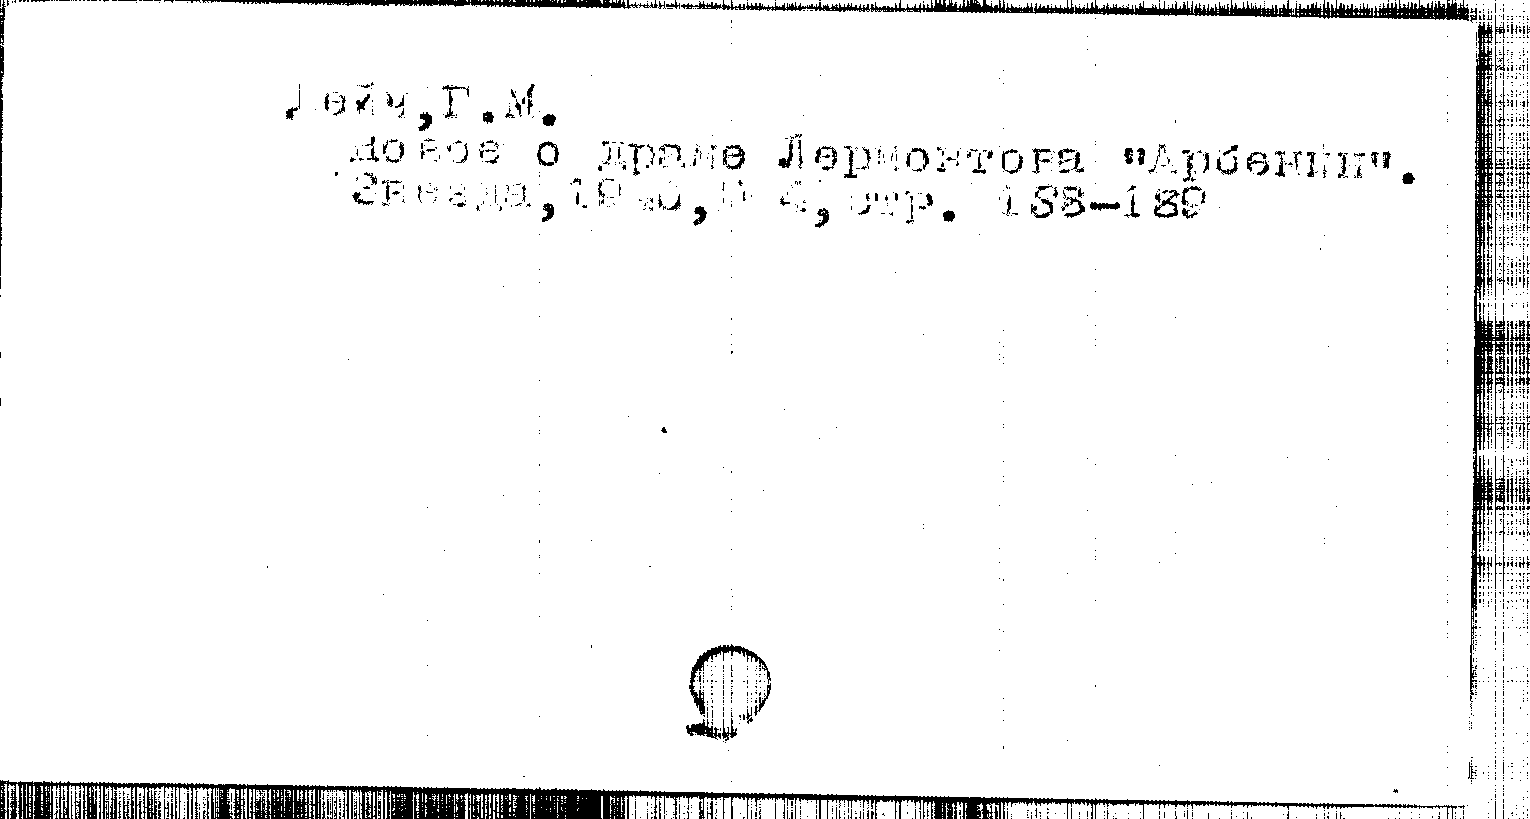 Лейч,Г.М.
Новое о драме Лермонтова "Арбенин".
Звезда,1940,№ 4,стр. 188-189